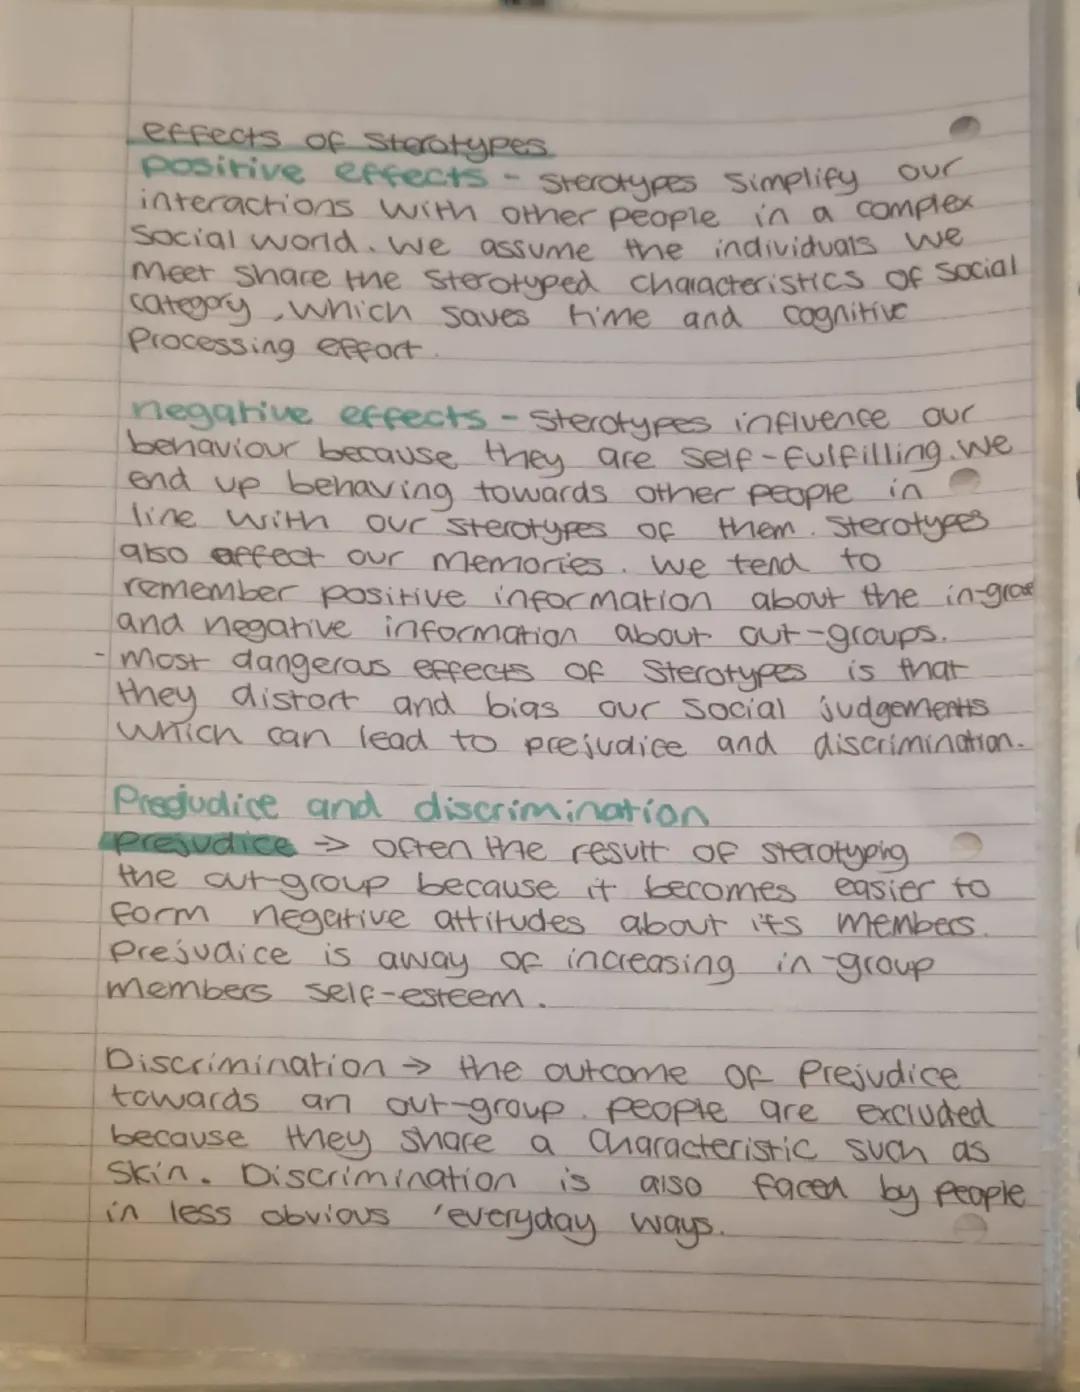 effects of Sterotypes
positive effects - Sterotypes Simplify our
interactions with other people in a complex
Social world. We assume the individuals we
meet share the Sterotyped characteristics of social
category, which saves time and cognitive
Processing effort.
negative effects - Sterotypes influence our
behaviour because they are self-fulfilling. We
end up behaving towards other people in
line with our sterotypes of them. Sterotypes
also affect our memories. We tend to
remember positive information about the in-grou
and negative information about out-groups.
- Most dangerous effects of Sterotypes is that
they distort and bias our social judgements
which can lead to prejudice and discrimination.
Prejudice and discrimination
prejudice → often the result of steroyping
the out-group because it becomes easier to
form negative attitudes about its members.
Prejudice is away of increasing in-group
members self-esteem.
Discrimination → the outcome of Prejudice
towards an out-group. people are excluded
because they share a characteristic such as
skin. Discrimination is also faced by people
in less obvious 'everyday ways.